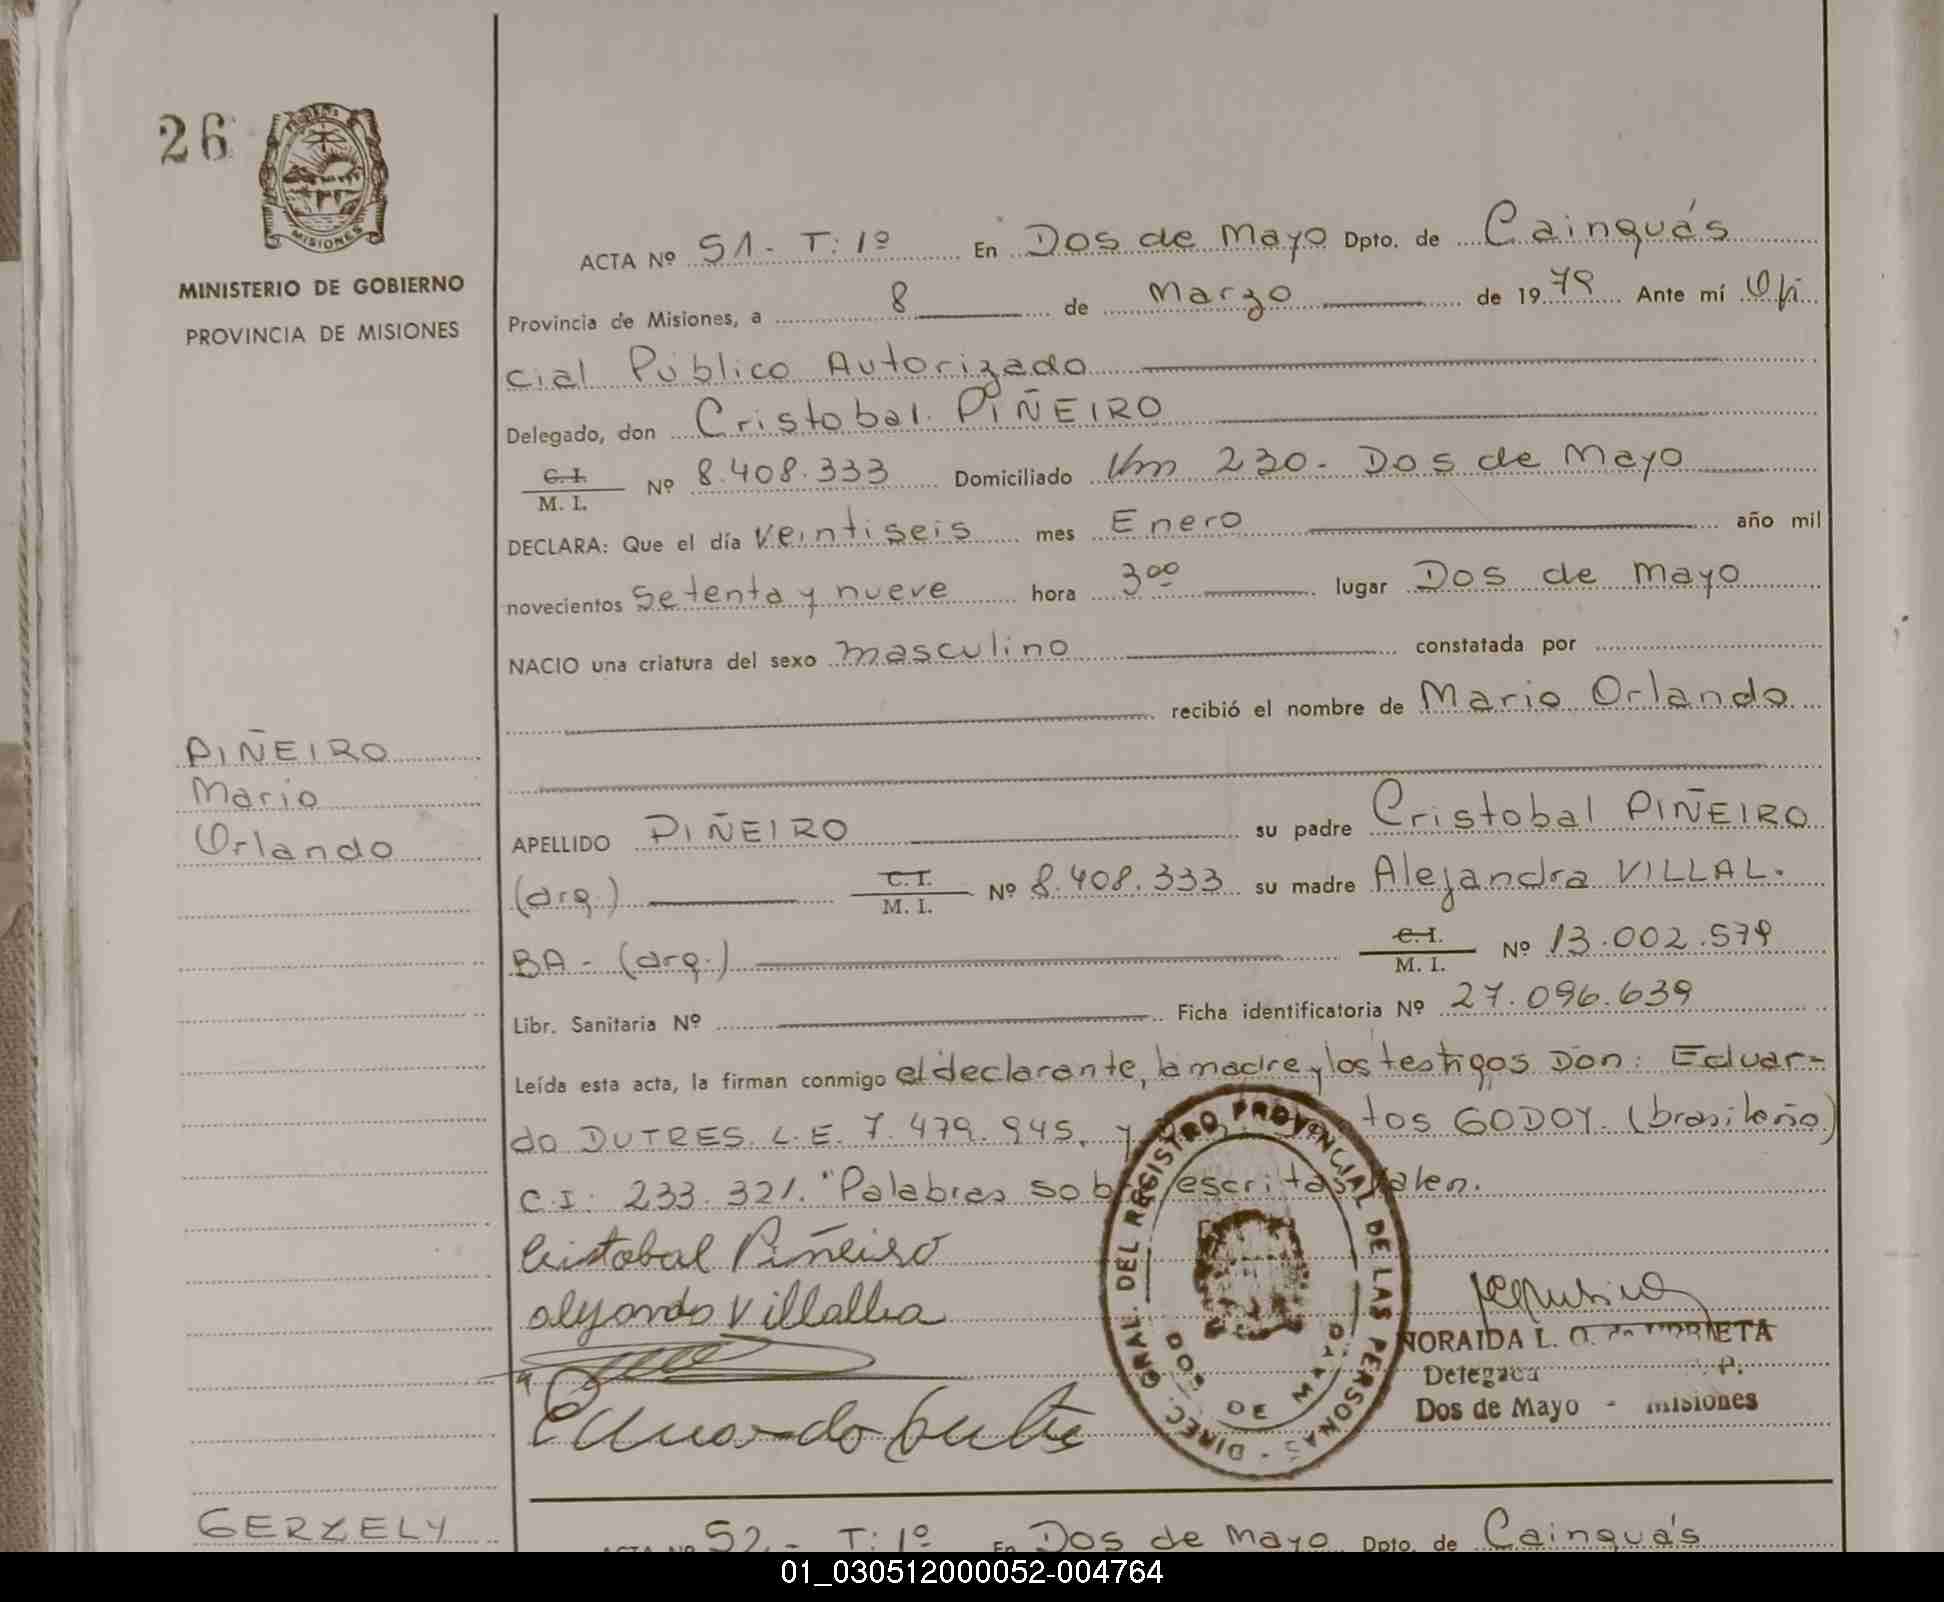 26
MISIONES
MINISTERIO DE GOBIERNO
PROVINCIA DE MISIONES
ACTA Nº 51 - T: 1º En Dos de Mayo Dpto. de Cainguás
Provincia de Misiones, a 8 de Marzo de 1979 Ante mí Ofi
cial Público Autorizado
Delegado, don Cristobal PIÑEIRO
C. I.
M. I. Nº 8.408.333 Domiciliado Km 230 - Dos de Mayo
DECLARA: Que el día veintiseis mes Enero año mil
novecientos setenta y nueve hora 3⁰⁰ lugar Dos de Mayo
NACIO una criatura del sexo masculino constatada por
recibió el nombre de Mario Orlando
PIÑEIRO
Mario
Orlando
APELLIDO PIÑEIRO su padre Cristobal PIÑEIRO
(arg.) C. I.
M. I. Nº 8.408.333 su madre Alejandra VILLAL-
BA - (arg.) C. I.
M. I. Nº 13.002.579
Libr. Sanitaria Nº Ficha identificatoria Nº 27.096.639
Leída esta acta, la firman conmigo el declarante, la madre y los testigos Don: Eduar-
do DUTRES L.E. 7.479.945, y tos GODOY. (brasileño)
C.I. 233.321. "Palabras sobrescritas valen.
Cristobal Piñeiro
alejandra Villalba
Eduardo
DIREC. GRAL. DEL REGISTRO PROVINCIAL DE LAS PERSONAS
DOS DE MAYO
NORAIDA L. O. de
Delegada
Dos de Mayo - Misiones
GERZELY
ACTA Nº 52 - T: 1º En Dos de Mayo Dpto. de Cainguás
01_030512000052-004764